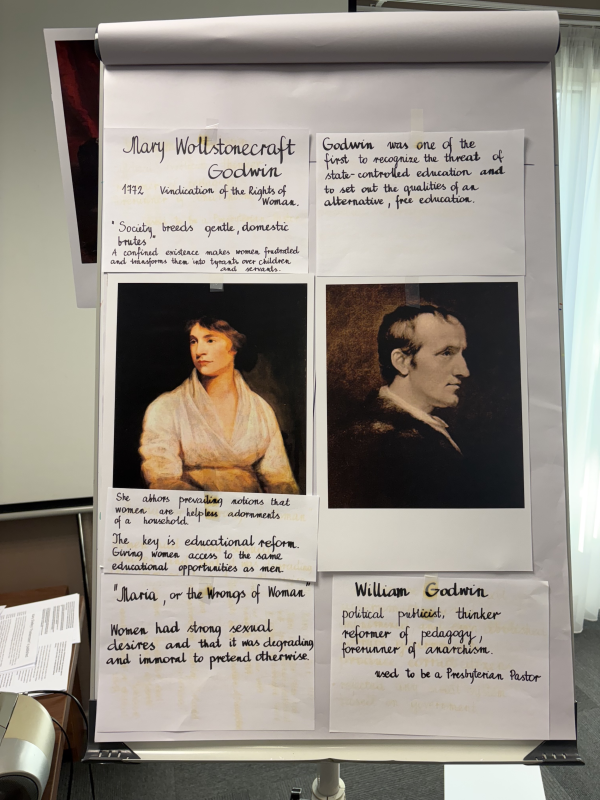 Mary Wollstonecraft
Godwin
1772 Vindication of the Rights of
Woman.
"Society breeds gentle, domestic
brutes"
A confined existence makes women frustrated
and transforms them into tyrants over children
and servants.
Godwin was one of the
first to recognize the threat of
state-controlled education and
to set out the qualities of an
alternative, free education.
She abhors prevailing notions that
women are helpless adornments
of a household.
The key is educational reform.
Giving women access to the same
educational opportunities as men.
"Maria, or the Wrongs of Woman"
Women had strong sexual
desires and that it was degrading
and immoral to pretend otherwise.
William Godwin
political publicist, thinker
reformer of pedagogy,
forerunner of anarchism.
used to be a Presbyterian Pastor